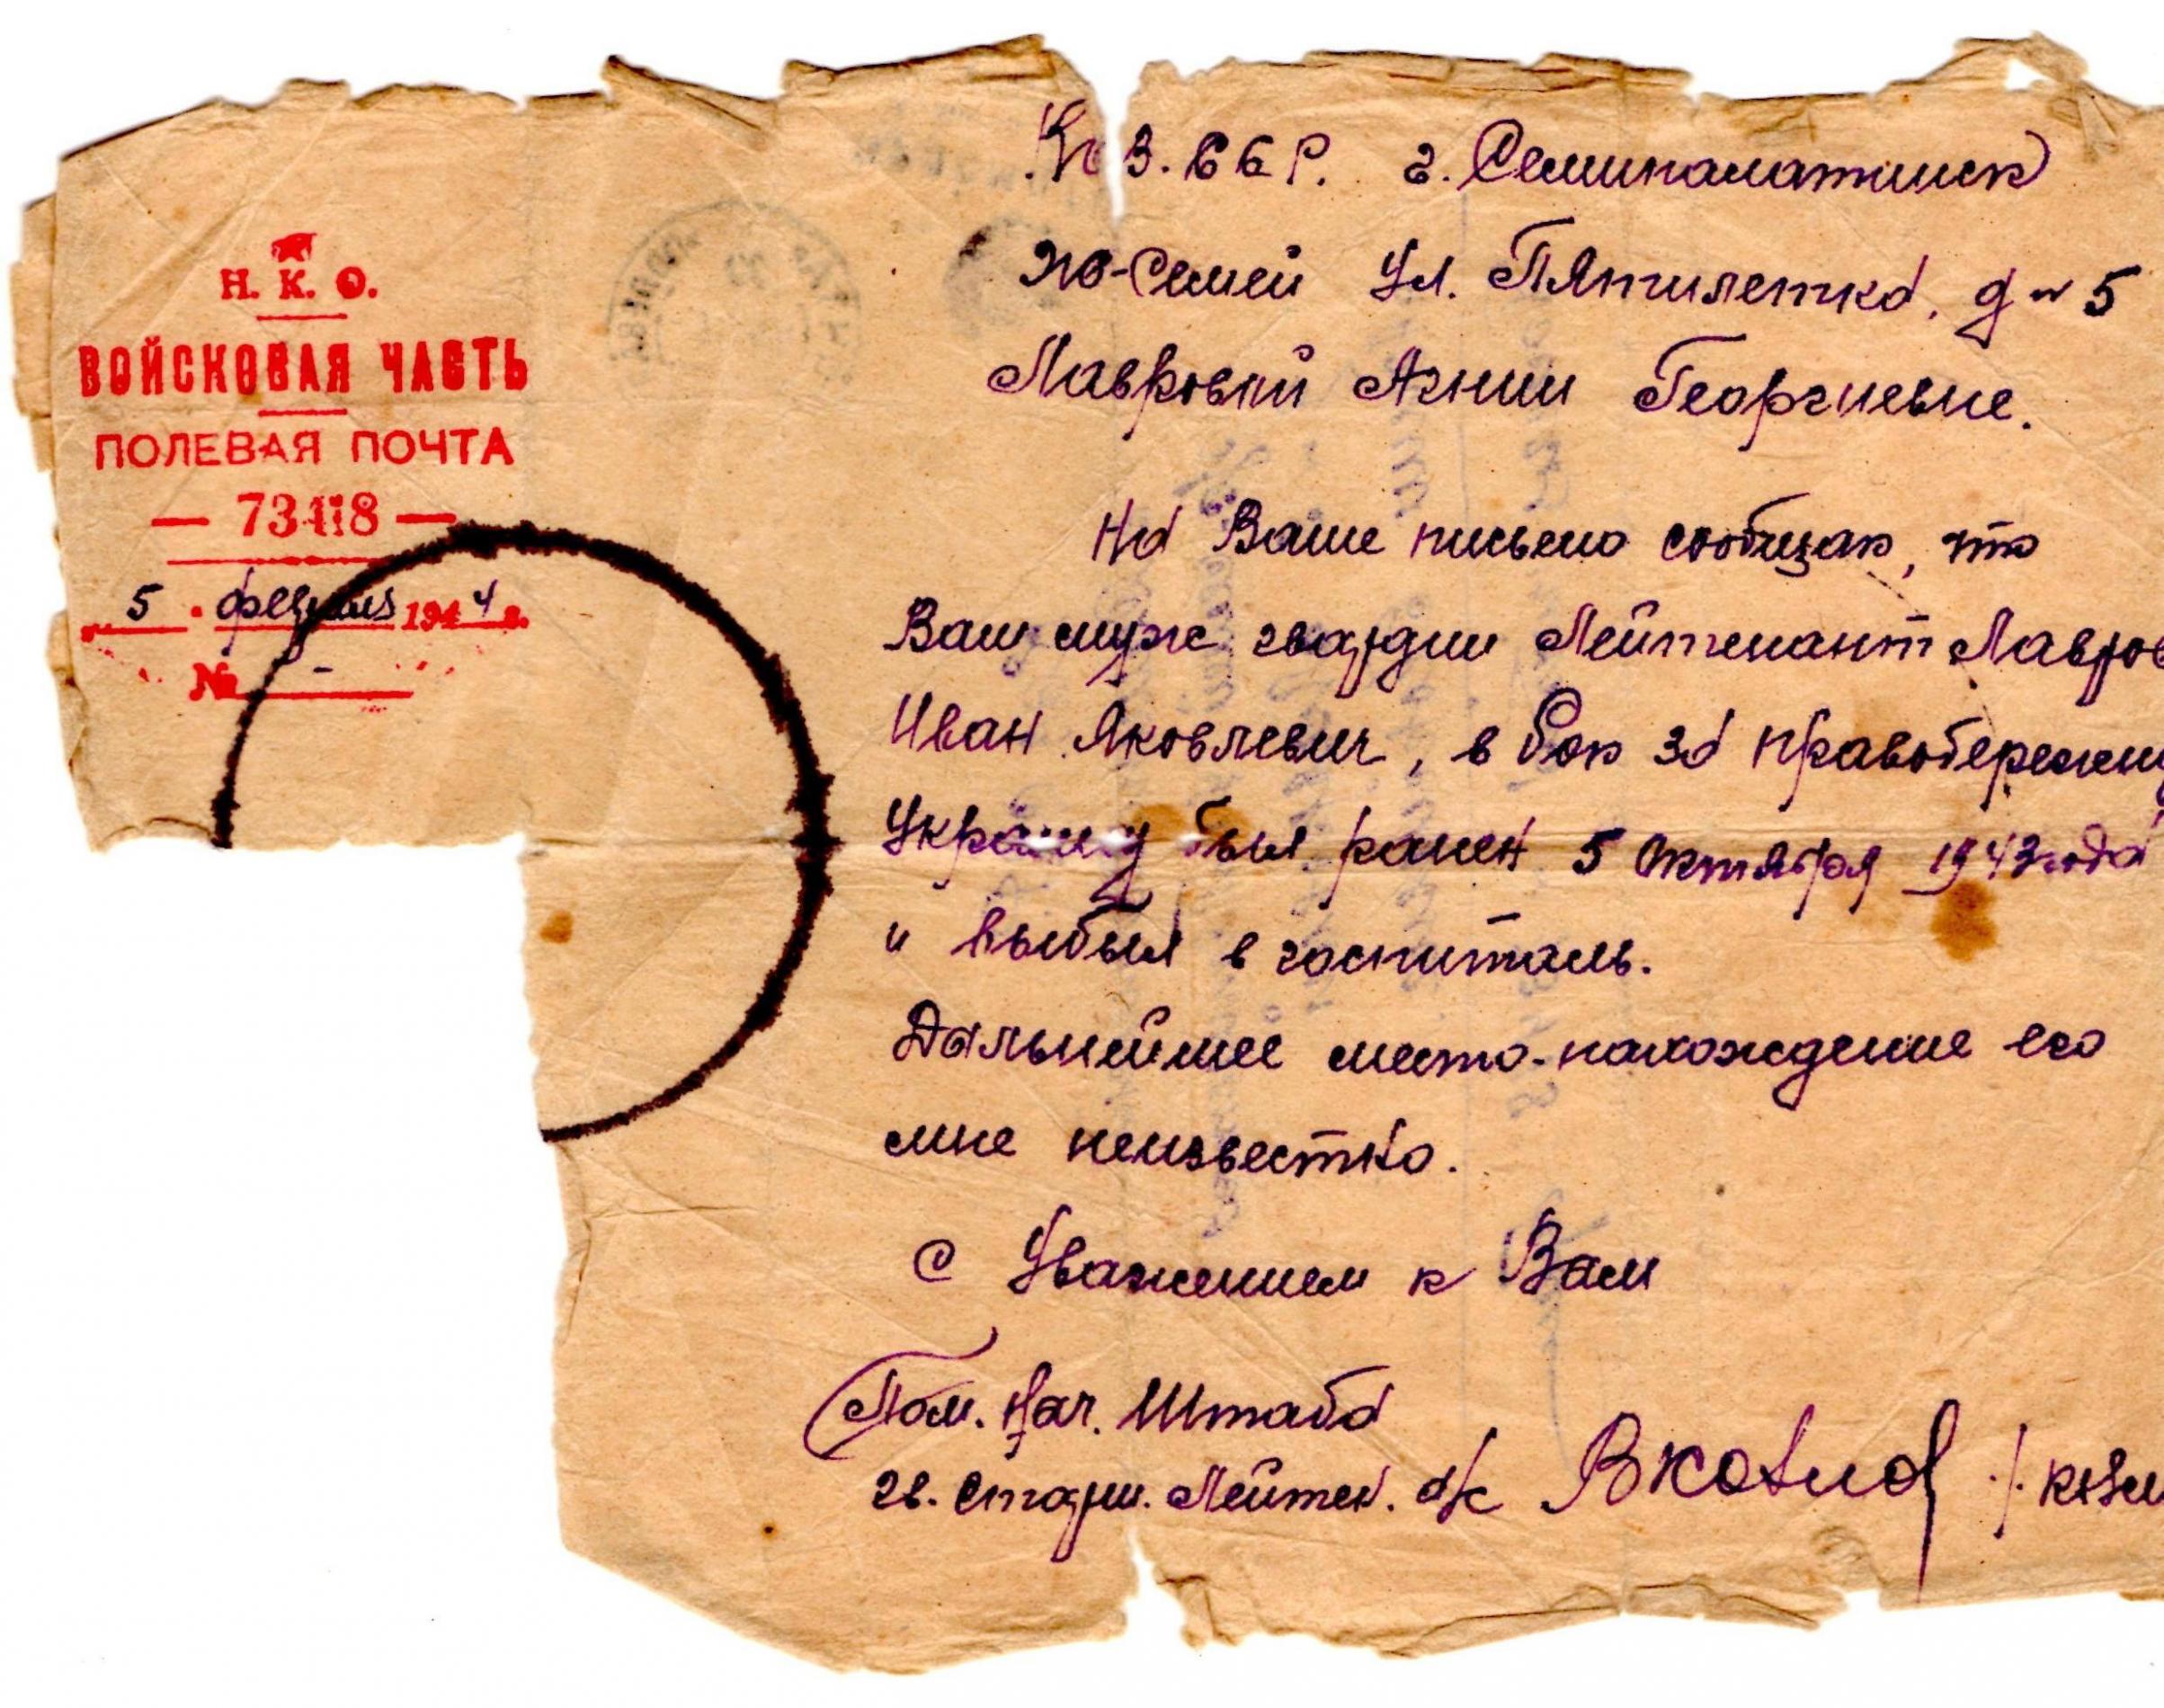 Н. К. О.
ВОЙСКОВАЯ ЧАСТЬ
ПОЛЕВАЯ ПОЧТА
— 73418 —
„ 5 " февраля 1944 г.
№ -
Каз. ССР. г. Семипалатинск
Жо-Семей Ул. Пятилетка, д № 5
Лавровой Агнии Георгиевне.
На Ваше письмо сообщаю, что
Ваш муж гвардии Лейтенант Лавров
Иван Яковлевич, в бою за правобережну
Украину был ранен 5 Октября 1943 года
и выбыл в госпиталь.
Дальнейшее место-нахождение его
мне неизвестно.
С Уважением к Вам
Пом. Нач. Штаба
гв. старш. Лейтен. а/с